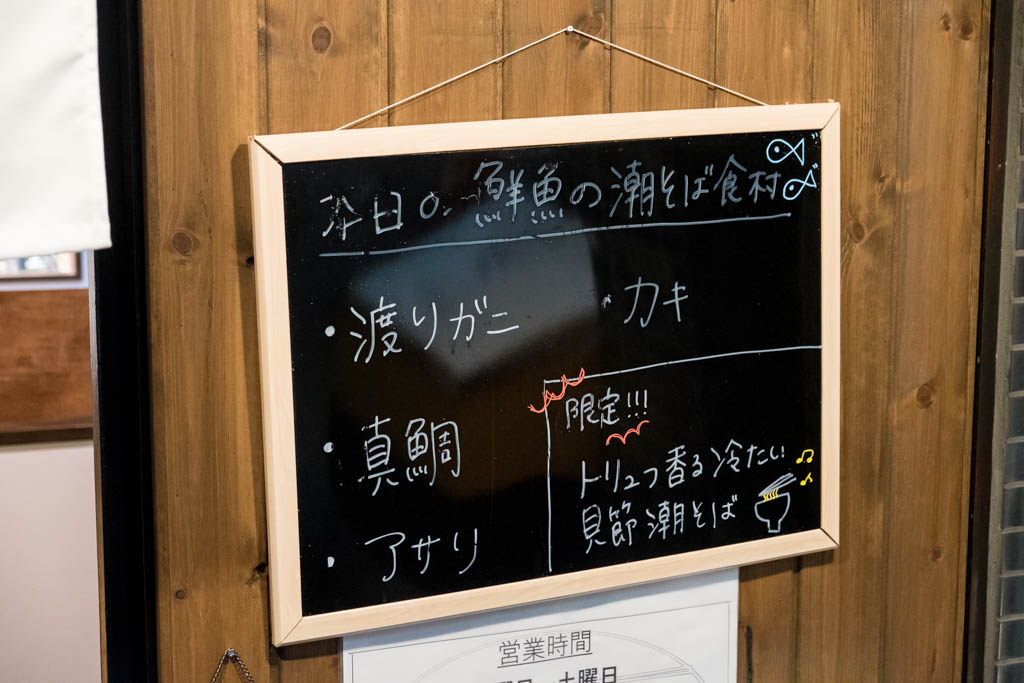 本日の 鮮魚の潮そば食材
・渡りガニ
・カキ
・真鯛
・アサリ
限定!!!
トリュフ香る冷たい
貝節潮そば
営業時間
土曜日